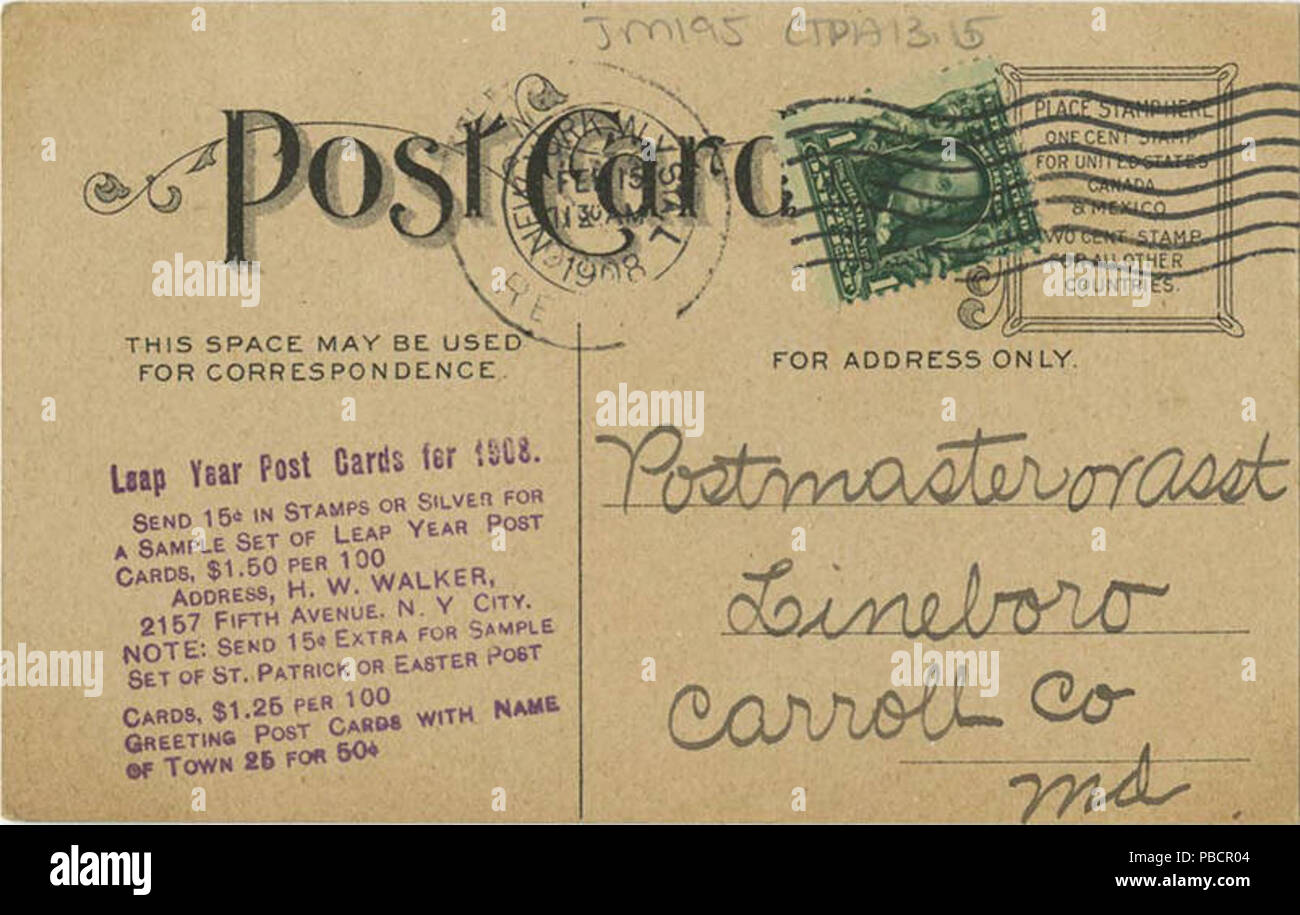 JM195 CTPA13.15
Post Card
NEW YORK, N.Y. STA. L
FEB 15
11 30 AM
1908
PLACE STAMP HERE
ONE CENT STAMP
FOR UNITED STATES
CANADA
& MEXICO
TWO CENT STAMP
FOR ALL OTHER
COUNTRIES.
THIS SPACE MAY BE USED
FOR CORRESPONDENCE.
FOR ADDRESS ONLY.
Leap Year Post Cards for 1908.
SEND 15¢ IN STAMPS OR SILVER FOR
A SAMPLE SET OF LEAP YEAR POST
CARDS, $1.50 PER 100
ADDRESS, H. W. WALKER,
2157 FIFTH AVENUE, N. Y CITY.
NOTE: SEND 15¢ EXTRA FOR SAMPLE
SET OF ST. PATRICK OR EASTER POST
CARDS, $1.25 PER 100
GREETING POST CARDS WITH NAME
OF TOWN 25 FOR 50¢
Postmaster or asst
Lineboro
Carroll Co
Md.
alamy
alamy
Image ID: PBCR04
www.alamy.com